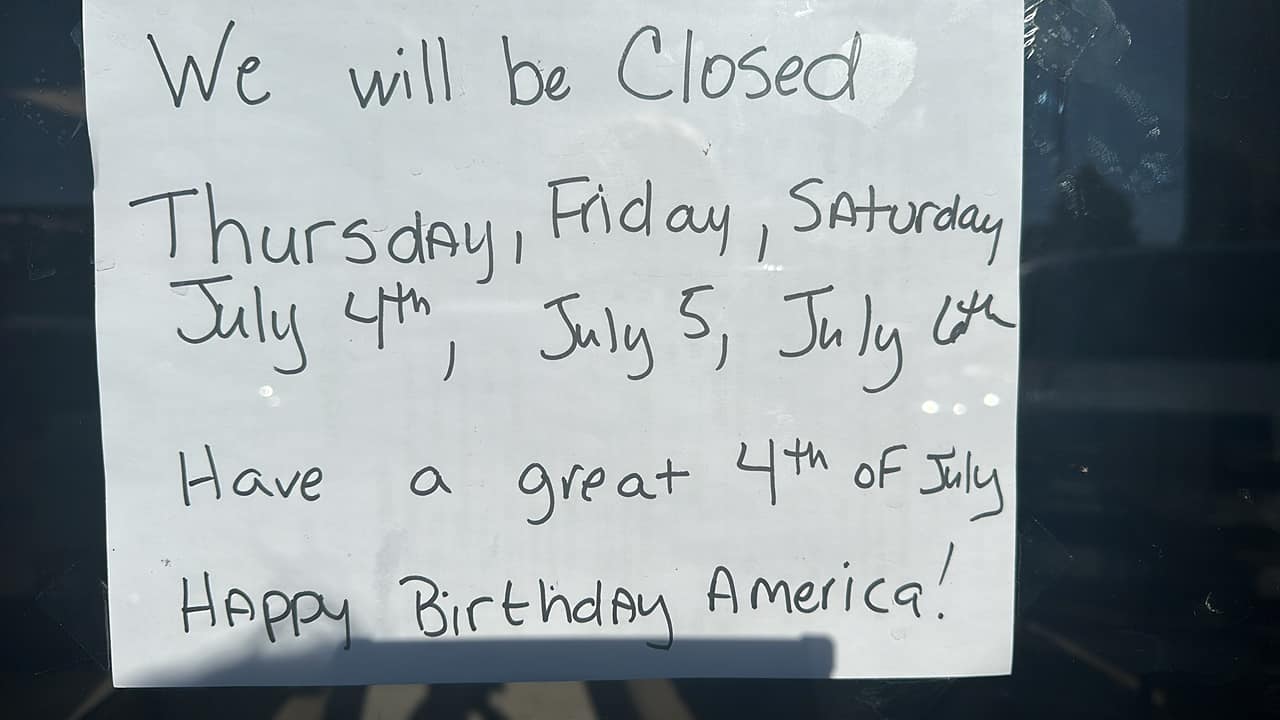 We will be Closed
Thursday, Friday, Saturday
July 4th, July 5, July 6th
Have a great 4th of July
Happy Birthday America!